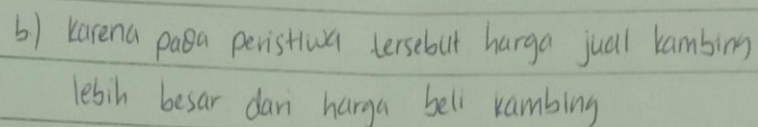 b) karena pada peristiwa tersebut harga jual kambing
lebih besar dari harga beli kambing